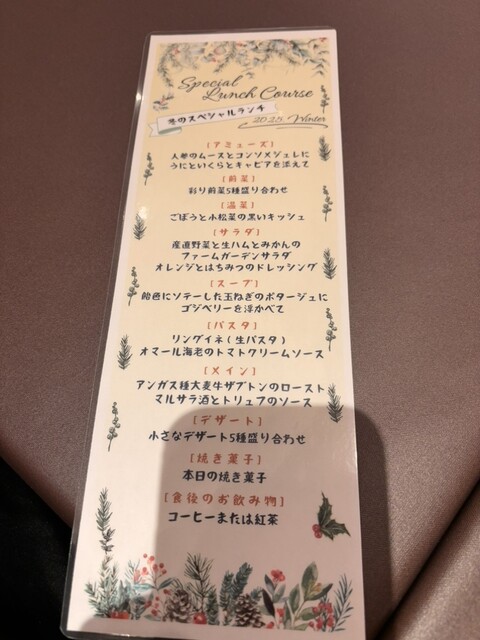 Special
Lunch Course
冬のスペシャルランチ
2025. Winter
[アミューズ]
人参のムースとコンソメジュレに
うにといくらとキャビアを添えて
[前菜]
彩り前菜5種盛り合わせ
[温菜]
ごぼうと小松菜の黒いキッシュ
[サラダ]
産直野菜と生ハムとみかんの
ファームガーデンサラダ
オレンジとはちみつのドレッシング
[スープ]
飴色にソテーした玉ねぎのポタージュに
ゴジベリーを浮かべて
[パスタ]
リングイネ(生パスタ)
オマール海老のトマトクリームソース
[メイン]
アンガス種大麦牛ザブトンのロースト
マルサラ酒とトリュフのソース
[デザート]
小さなデザート5種盛り合わせ
[焼き菓子]
本日の焼き菓子
[食後のお飲み物]
コーヒーまたは紅茶